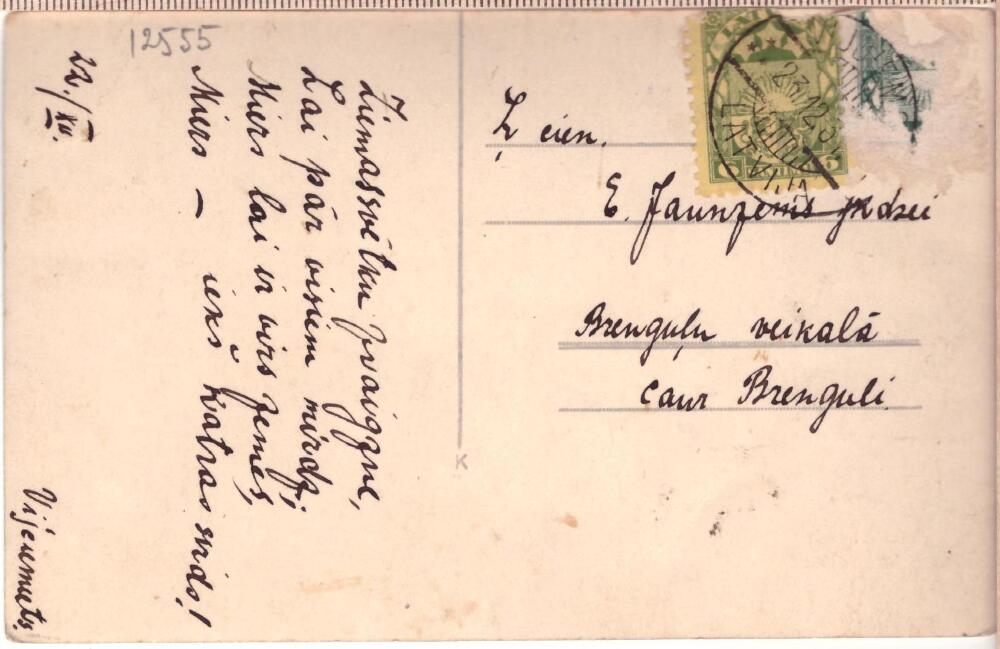 12555
22./XII.
Ziemassvētku zvaigzne,
Lai pār visiem mirdz,
Miers lai ir virs zemes,
Miers – iekš katras sirds!
Ļ cien.
E. Jaunzems jkdzei
Brenguļu veikalā
caur Brenguli.
LATVIJA
23 12 3
6 6
K